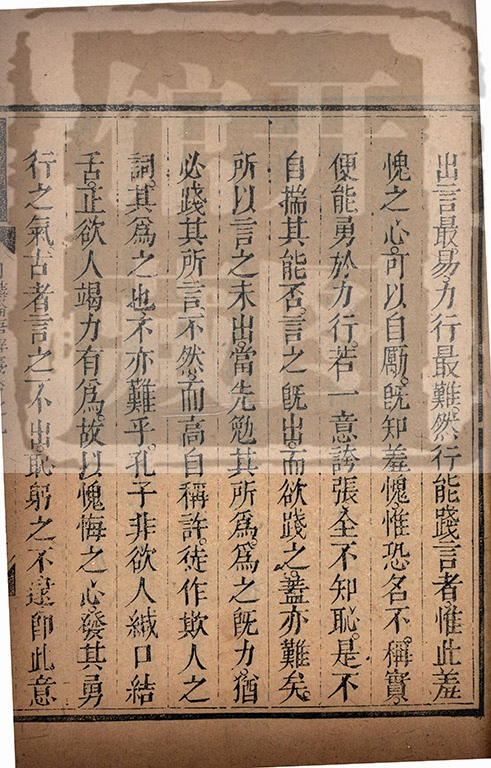 出言最易力行最難然行能踐言者惟此羞
愧之心可以自勵旣知羞愧惟恐名不稱實
便能勇於力行若一意誇張全不知恥是不
自揣其能否言之旣出而欲踐之蓋亦難矣
所以言之未出當先勉其所爲爲之旣力猶
必踐其所言不然而高自稱許徒作欺人之
詞其爲之也不亦難乎孔子非欲人緘口結
舌正欲人竭力有爲故以愧悔之心發其勇
行之氣古者言之不出恥躬之不逮卽此意